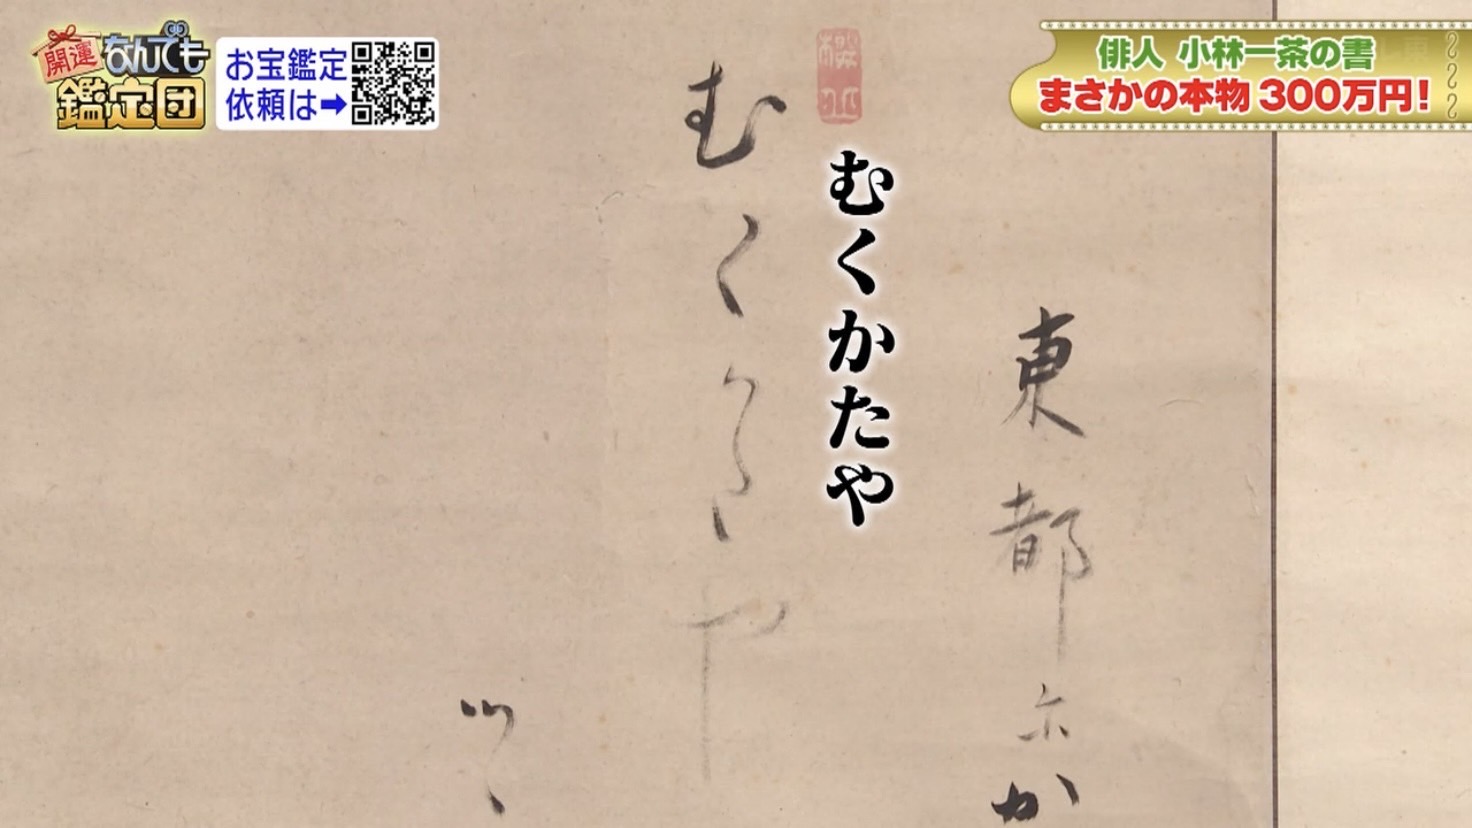 開運
なんでも
鑑定団
お宝鑑定
依頼は➡
俳人 小林一茶の書
まさかの本物 300万円!
東都尓か
むくかたや
むくかたや